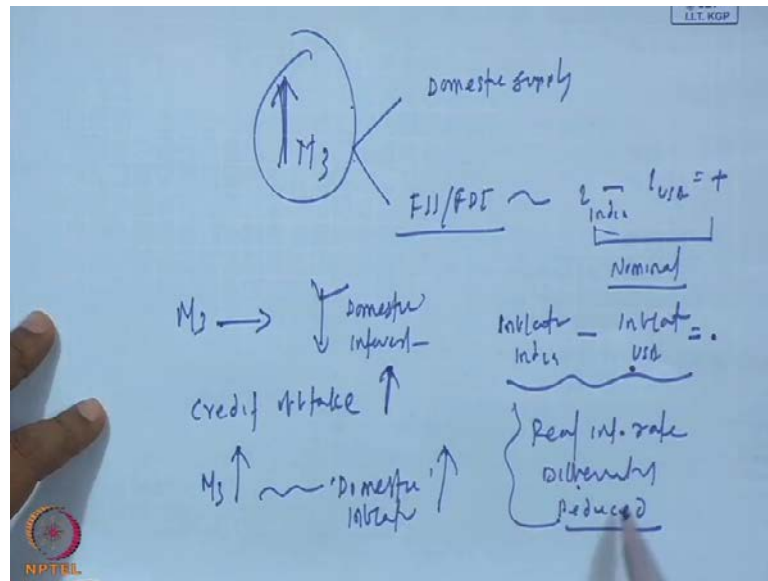 I.I.T. KGP
Domestic supply
M3
FII/FDI ~ i India - i USA = +
Nominal
M3 → Domestic interest
Inflation India - Inflation USA =
Credit uptake
Real int. rate
M3 ~ 'Domestic' Inflation
Differential
Reduced
NPTEL